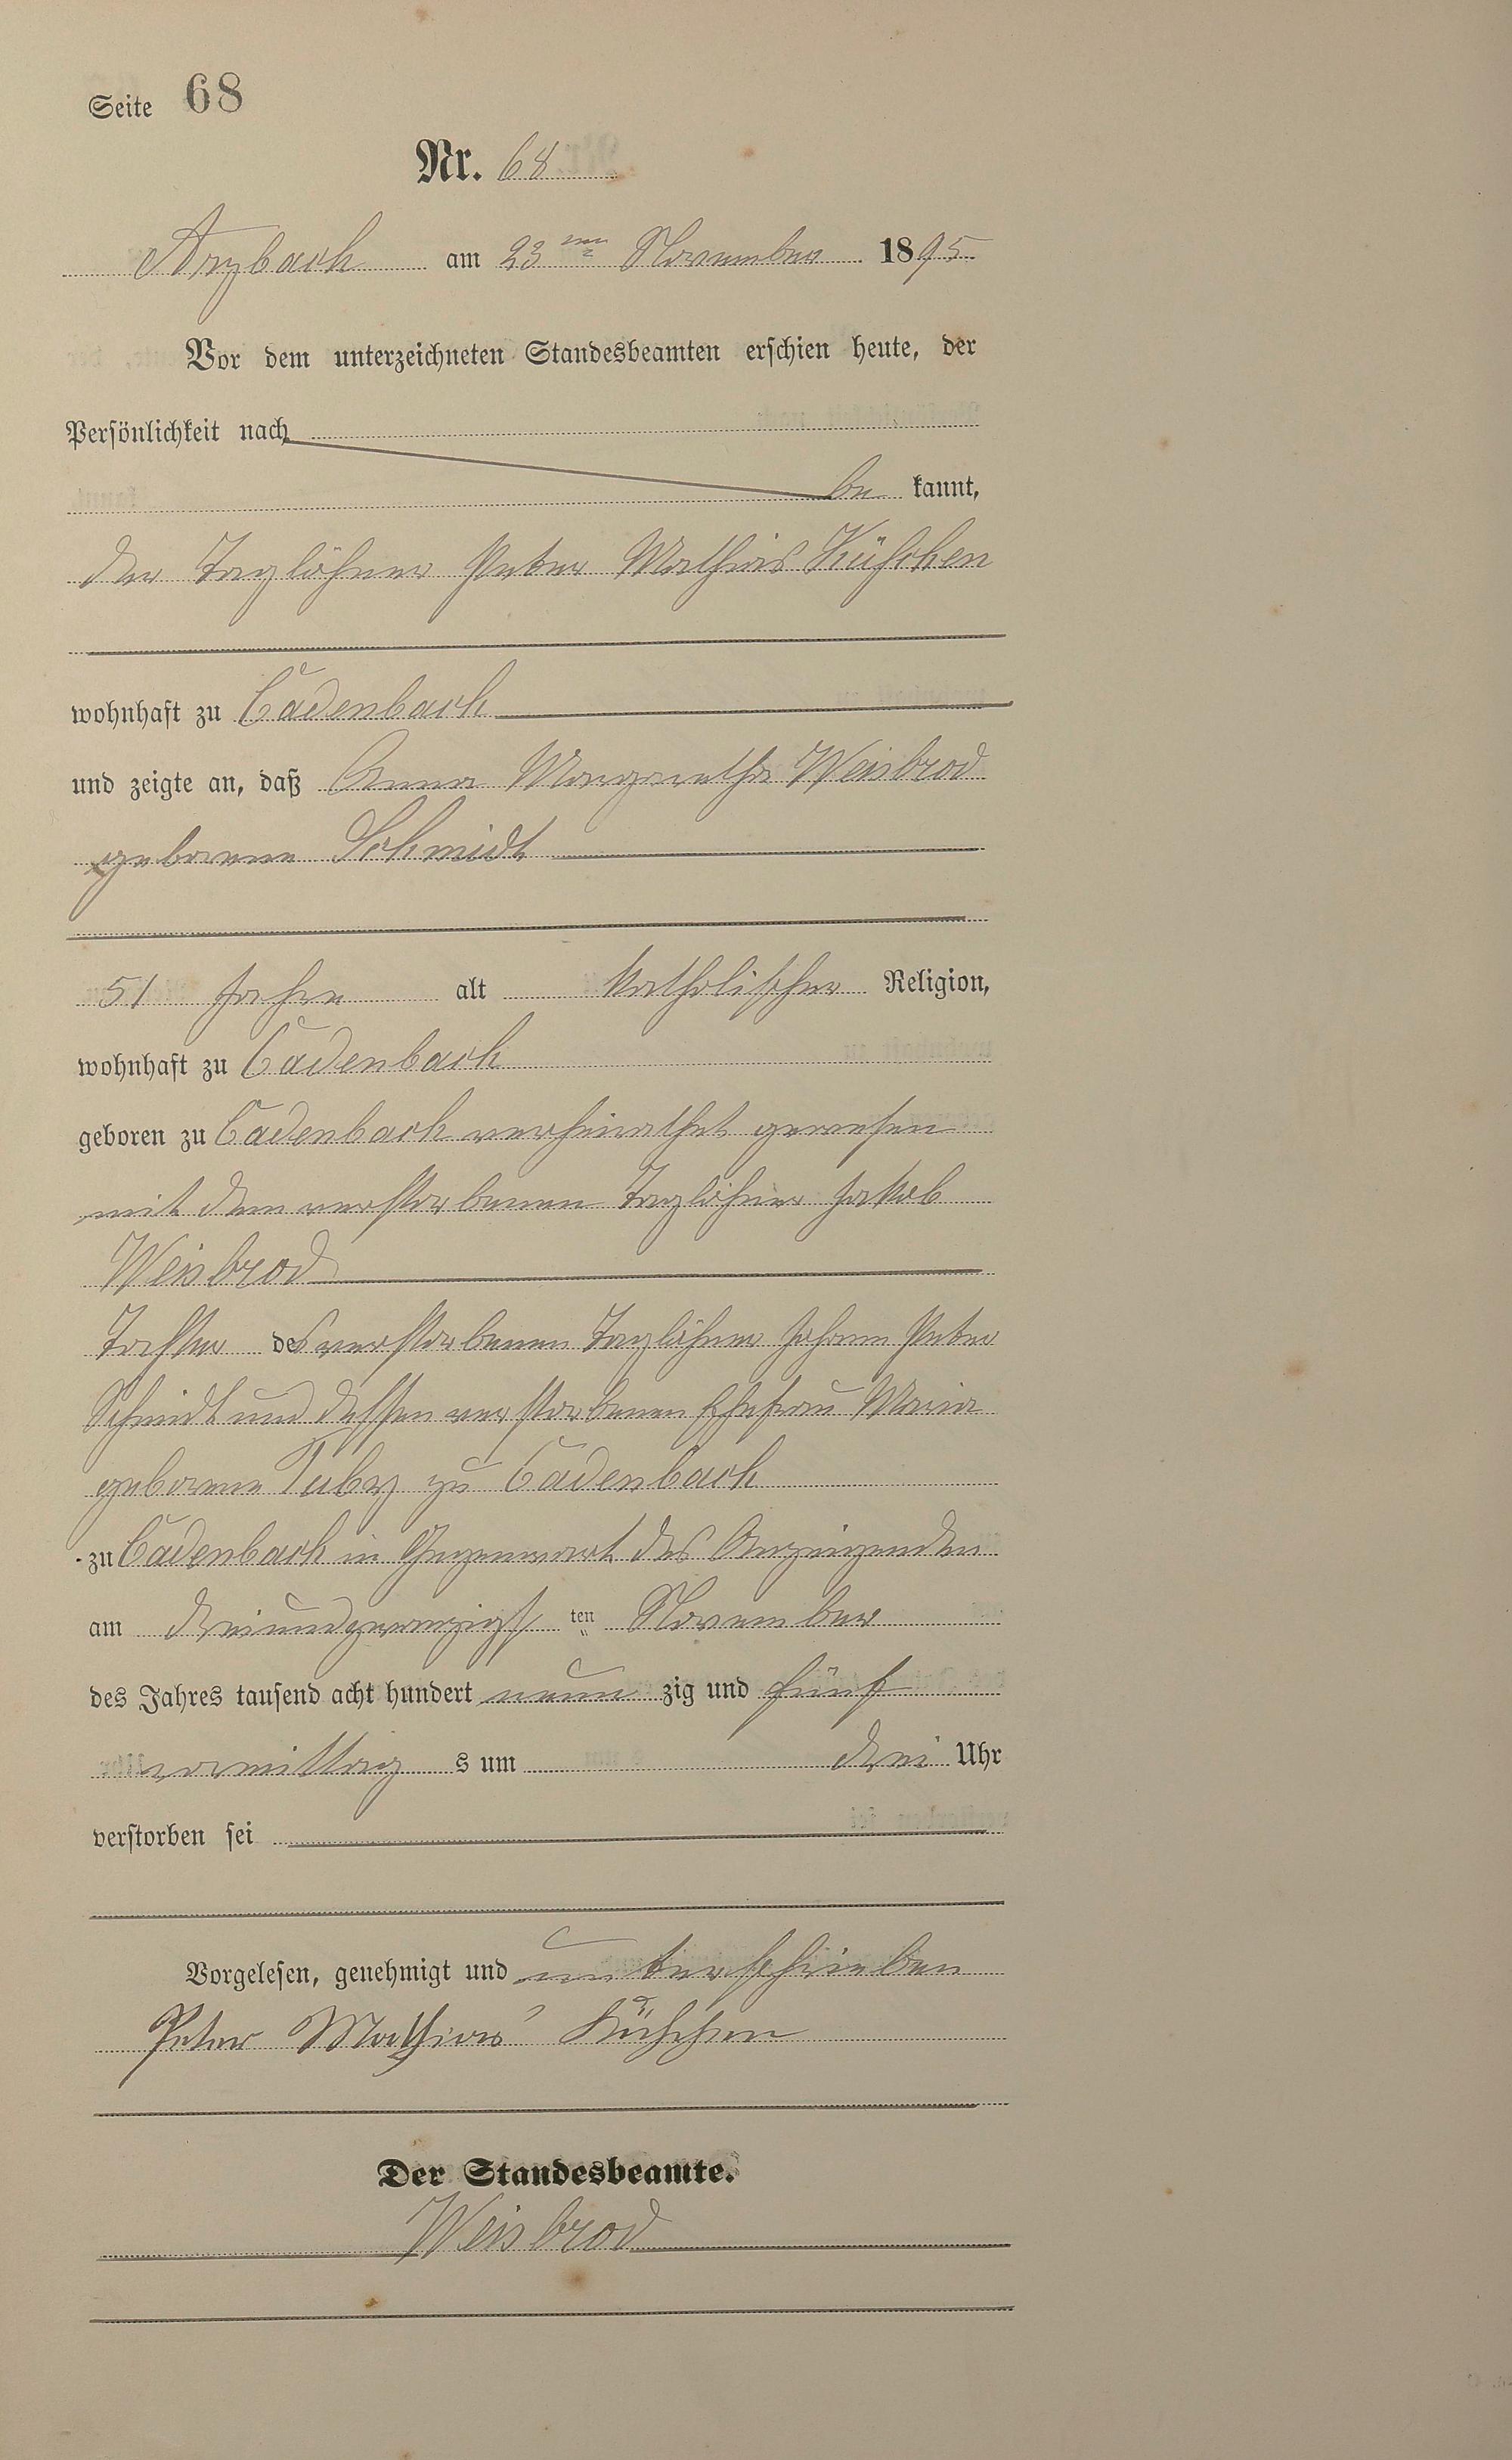 Seite 68
Nr. 68
Arzbach am 23ten November 1895
Vor dem unterzeichneten Standesbeamten erschien heute, der
Persönlichkeit nach
be kannt,
der Taglöhner Peter Mathias Küschen
wohnhaft zu Cadenbach
und zeigte an, daß Anna Margaretha Weisbrod
geborene Schmidt
51 Jahre alt katholischer Religion,
wohnhaft zu Cadenbach
geboren zu Cadenbach verheirathet gewesen
mit dem verstorbenen Taglöhner Jakob
Weisbrod
Tochter des verstorbenen Taglöhner Johann Peter
Schmidt und dessen verstorbenen Ehefrau Maria
geborene zu Cadenbach
zu Cadenbach in Gegenwart des Anzeigenden
am dreiundzwanzigsten November
des Jahres tausend acht hundert neun zig und fünf
vormittag s um drei Uhr
verstorben sei
Vorgelesen, genehmigt und unterschrieben
Peter Mathias Küschen
Der Standesbeamte.
Weisbrod